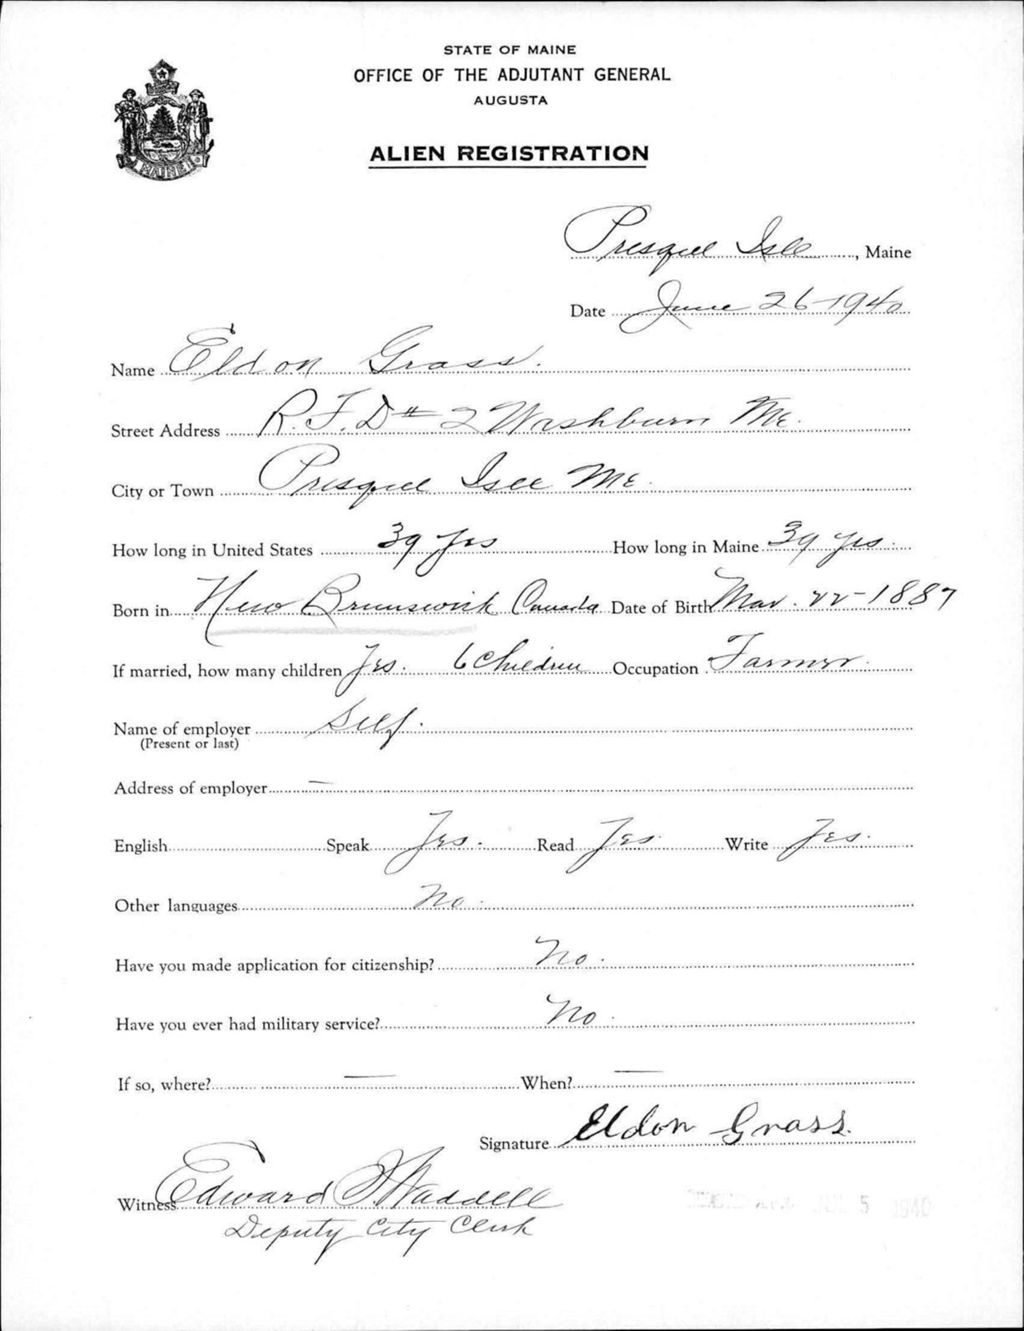 STATE OF MAINE
OFFICE OF THE ADJUTANT GENERAL
AUGUSTA
ALIEN REGISTRATION
MAINE
Presquel Isle, Maine
Date June 26-1940
Name Eldon Grass.
Street Address R.F.D # 2 Washburn Me.
City or Town Presquel Isle Me.
How long in United States 39 yrs How long in Maine 39 yrs.
Born in New Brunswick Canada Date of Birth Mar. 22-1887
If married, how many children Yes. 6 Children Occupation Farmer.
Name of employer Self.
(Present or last)
Address of employer —
English Speak Yes. Read Yes Write Yes.
Other languages No.
Have you made application for citizenship? No.
Have you ever had military service? No.
If so, where? — When? —
Signature Eldon Grass.
Witness Edward Waddell
Deputy City Clerk
5 1940